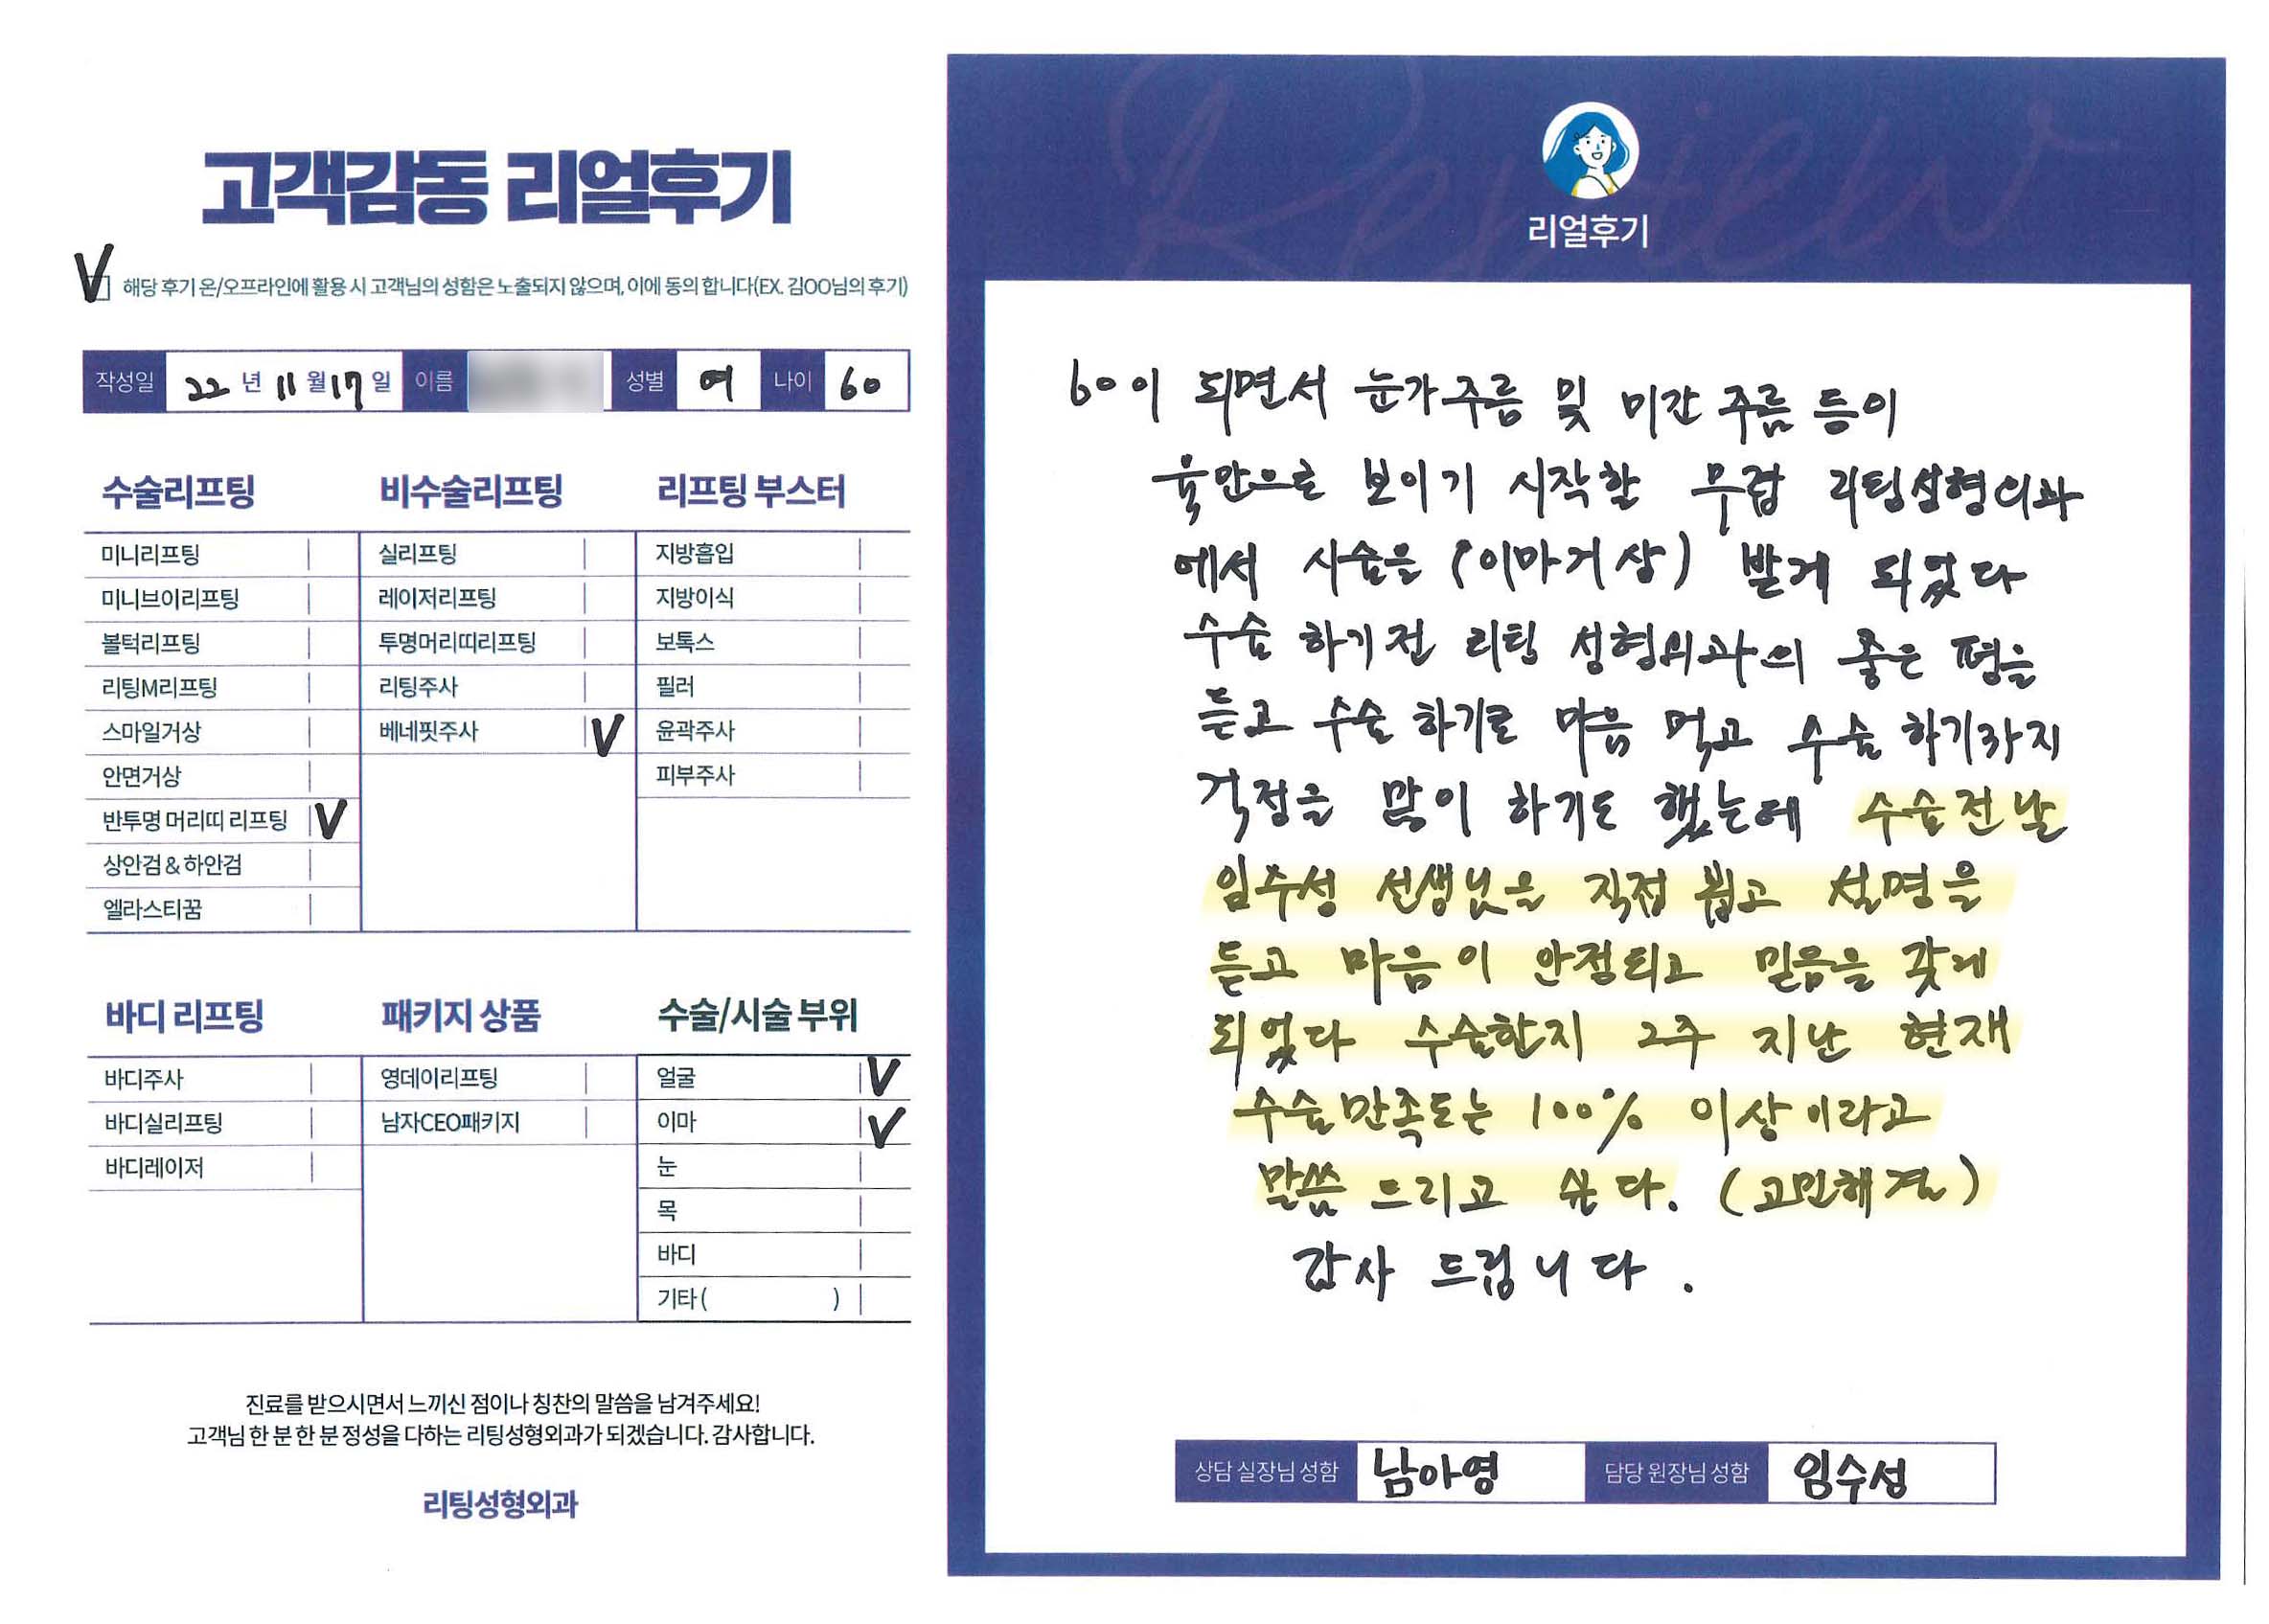 고객감동 리얼후기
해당 후기 온/오프라인에 활용 시 고객님의 성함은 노출되지 않으며, 이에 동의 합니다(EX. 김OO님의 후기)
작성일 22년 11월 17일 이름 성별 여 나이 60
수술리프팅
미니리프팅
미니브이리프팅
볼턱리프팅
리팅M리프팅
스마일거상
안면거상
반투명 머리띠 리프팅 V
상안검 & 하안검
엘라스티꿈
비수술리프팅
실리프팅
레이저리프팅
투명머리띠리프팅
리팅주사
베네핏주사 V
리프팅 부스터
지방흡입
지방이식
보톡스
필러
윤곽주사
피부주사
바디 리프팅
바디주사
바디실리프팅
바디레이저
패키지 상품
영데이리프팅
남자CEO패키지
수술/시술 부위
얼굴 V
이마 V
눈
목
바디
기타 ( )
진료를 받으시면서 느끼신 점이나 칭찬의 말씀을 남겨주세요!
고객님 한 분 한 분 정성을 다하는 리팅성형외과가 되겠습니다. 감사합니다.
리팅성형외과
Review
리얼후기
60이 되면서 눈가주름 및 미간 주름 등이
육안으로 보이기 시작할 무렵 리팅성형외과
에서 시술을 (이마거상) 받게 되었다
수술 하기전 리팅 성형외과의 좋은 평을
듣고 수술 하기로 마음 먹고 수술 하기까지
걱정을 많이 하기도 했는데 수술전날
임수성 선생님을 직접 뵙고 설명을
듣고 마음이 안정되고 믿음을 갖게
되었다 수술한지 2주 지난 현재
수술만족도는 100% 이상이라고
말씀 드리고 싶다. (고민해결)
감사 드립니다.
상담 실장님 성함 남아영 담당 원장님 성함 임수성